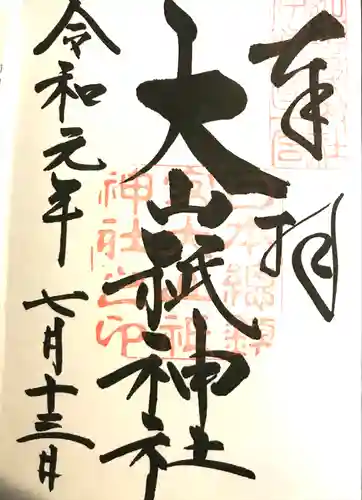 奉拝
大山祇神社
令和元年七月十三日